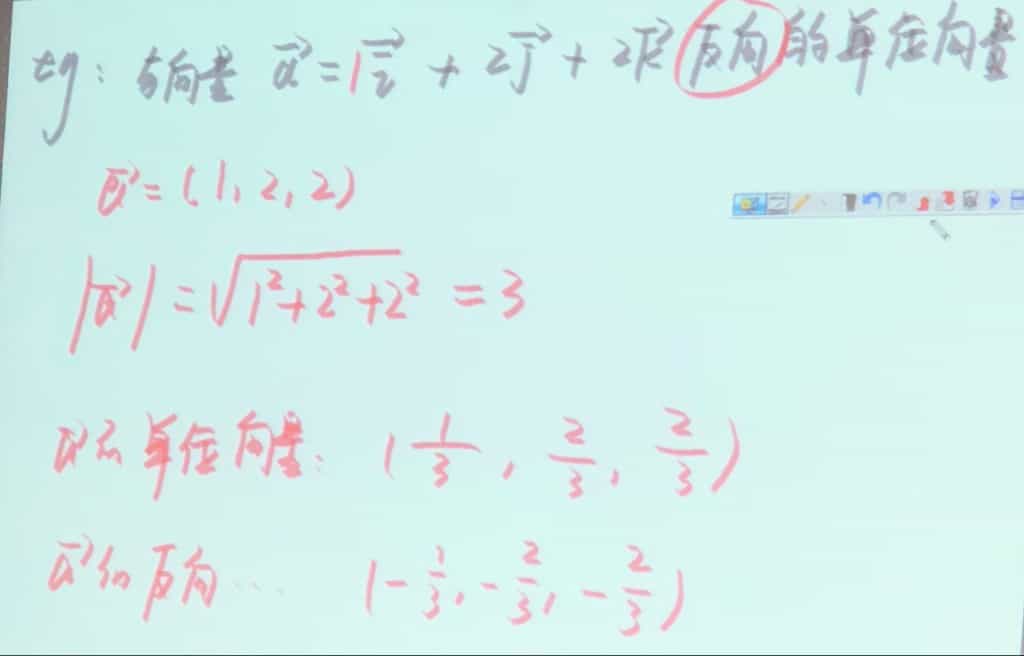 eg: 与向量 a⃗ = 1i⃗ + 2j⃗ + 2k⃗ 反向的单位向量
a⃗ = (1, 2, 2)
|a⃗| = √(1²+2²+2²) = 3
a⃗的单位向量: (1/3, 2/3, 2/3)
a⃗的反向... (-1/3, -2/3, -2/3)